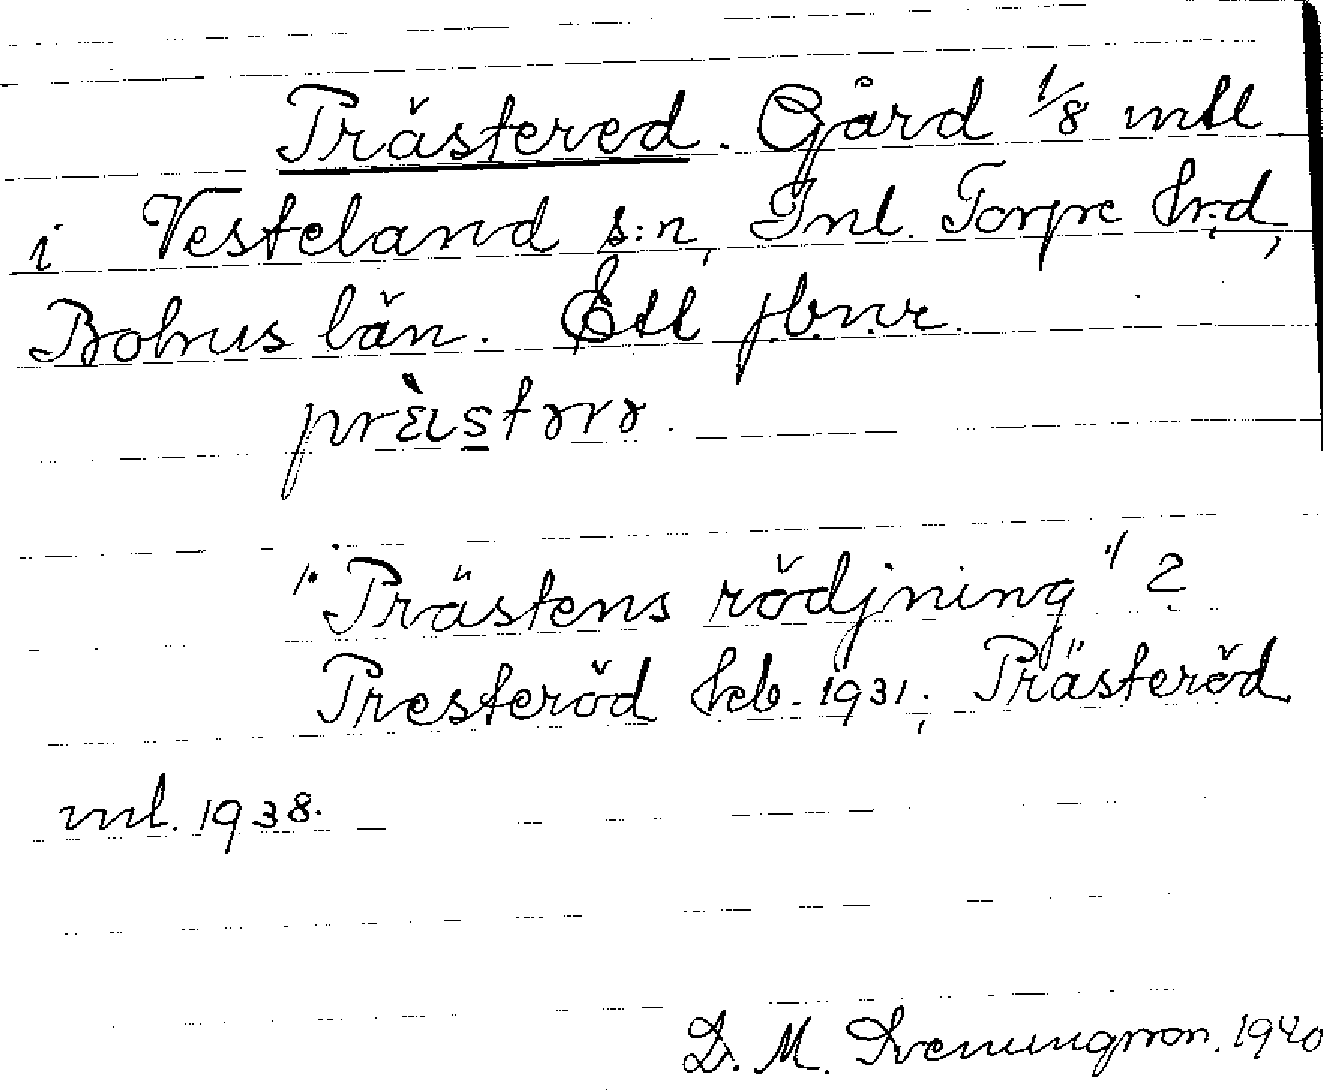 Prästered. Gård 1/8 mtl
i Vesteland s:n, Inl. Torpe hrd,
Bohus län. Ett jbnr.
prɛ̀ıstərə.
"Prästens rödjning"?
Presteröd heb. 1931; Prästeröd
ml. 1938.
D. M. Svenungsson. 1940